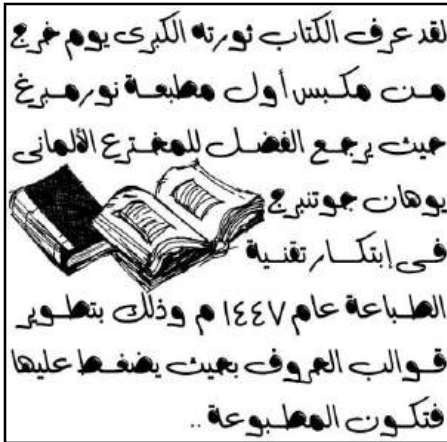 لقد عرف الكتاب ثورته الكبرى يوم خرج
من مكبس أول مطبعة نورمبرغ
حيث يرجع الفضل للمخترع الألمانى
يوهان جوتنبرج
فى إبتكار تقنية
الطباعة عام ١٤٤٧ م وذلك بتطوير
قوالب الحروف بحيث يضغط عليها
فتكون المطبوعة ..